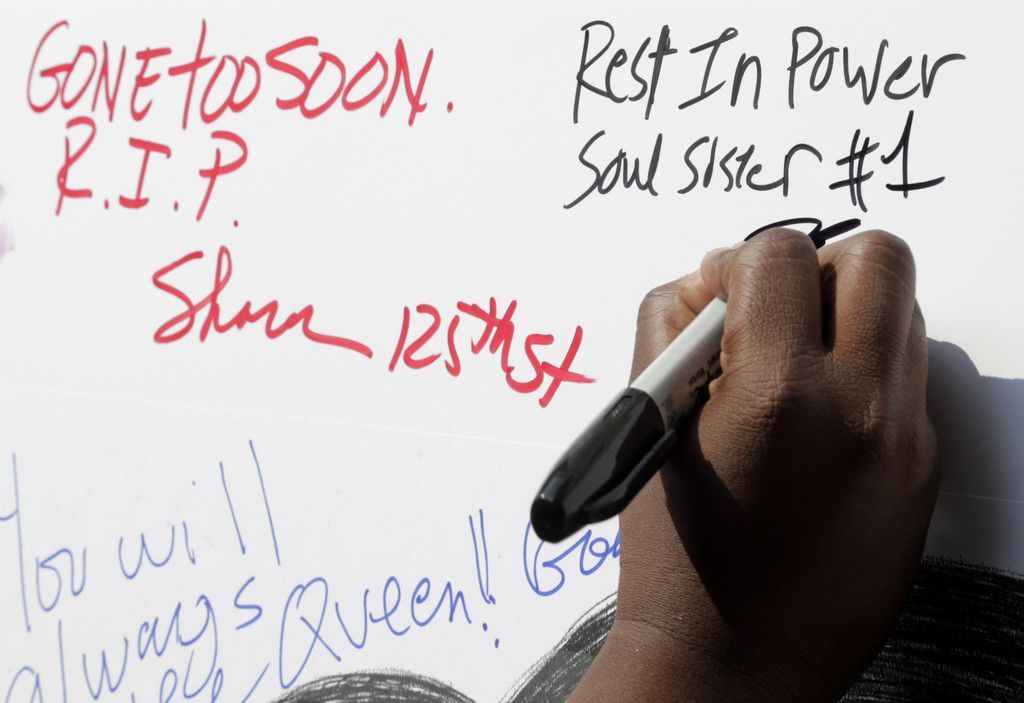 GONE too SOON.
R.I.P.
125th St
Rest In Power
Soul Sister #1
You will
always
Queen!!